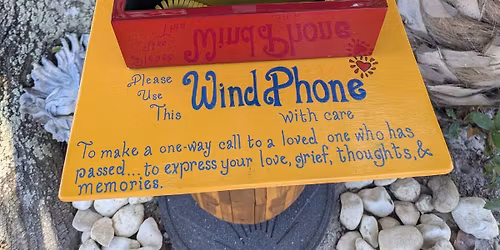 Please
Use
This
Wind Phone
with care
To make a one-way call to a loved one who has
passed...to express your love, grief, thoughts, &
memories.